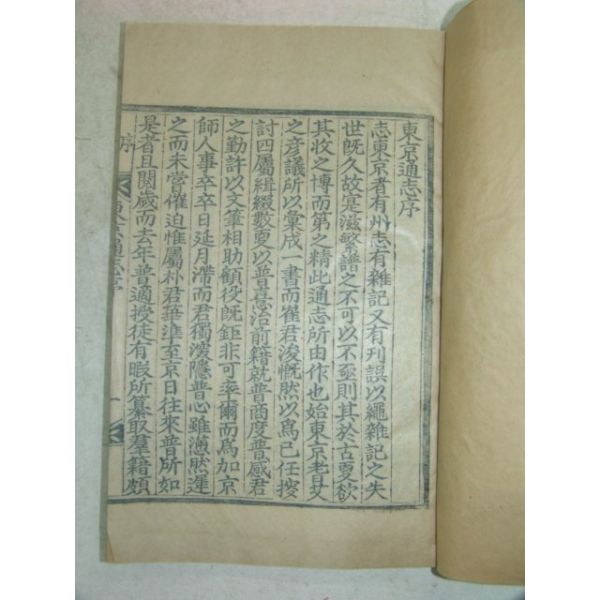 東京通志序
志東京者有州志有雜記又有刊誤以繩雜記之失
世旣久故寔滋繁譜之不可以不亟則其於古夏欲
其收之博而第之精此通志所由作也始東京老艾
之彦議所以彙成一書而崔君浚慨然以爲已任按
討四屬緝綴數夏以普憙治前籍就普商度普感君
之勤許以文筆相助顧役旣鉅非可率爾而爲加京
師人事卒卒日延月滯而君獨浚隱普心雖懣然遲
之而未嘗催迫惟屬朴君
準至京日往來普所如
是者且閱歲而去年普適授徒有暇所纂取羣籍頗
序
東京通志序
一